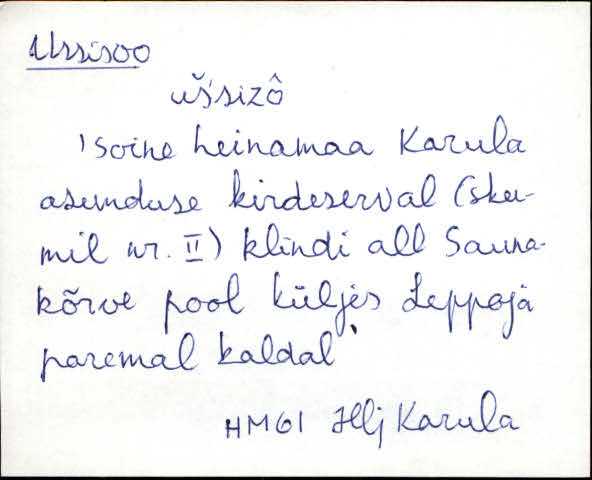 Ussisoo
uśśizô
'soine heinamaa Karula
asunduse kirdeserval (skee-
mil nr. II) klindi all Sauna-
kõrve pool küljes Leppoja
paremal kaldal'
HM61 Hlj Karula